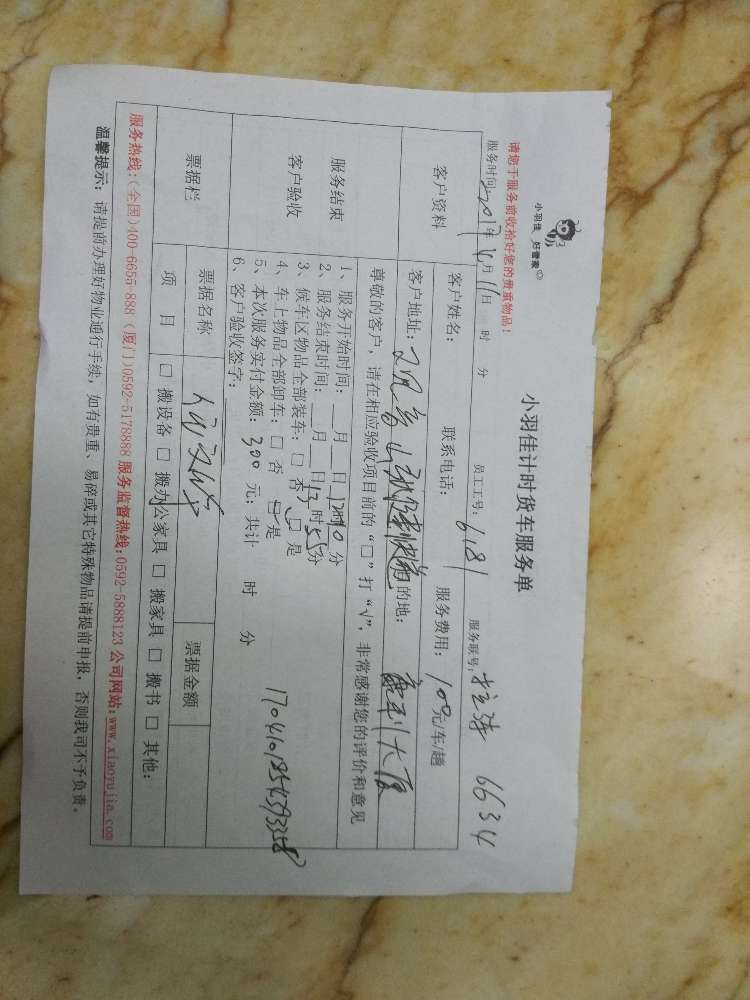 小羽佳 好管家
小羽佳计时货车服务单
请您于服务前收拾好您的贵重物品!
服务时间:2017年4月11日 时 分 员工工号:6181 服务联号: 6634
客户资料
客户姓名: 联系电话: 服务费用:100元/车/趟
客户地址: 的地: 大厦
服务结束
客户验收
尊敬的客户,请在相应验收项目前的“□”打“√”,非常感谢您的评价和意见
1、服务开始时间: 月 日 12时10分
2、服务结束时间: 月 日 13时55分
3、候车区物品全部装车:□ 否 □ 是
4、车上物品全部卸车:□ 否 □ 是
5、本次服务实付金额:300 元;共计 时 分
6、客户验收签字:
票据栏
票据名称 票据金额
项 目 □ 搬设备 □ 搬办公家具 □ 搬家具 □ 搬书 □ 其他:
服务热线:(全国)400-6655-888 (厦门)0592-5178888 服务监督热线:0592-5888123 公司网站:www.xiaoyujia.com
温馨提示: 请提前办理好物业通行手续,如有贵重、易碎或其它特殊物品请提前申报,否则我司不予负责。